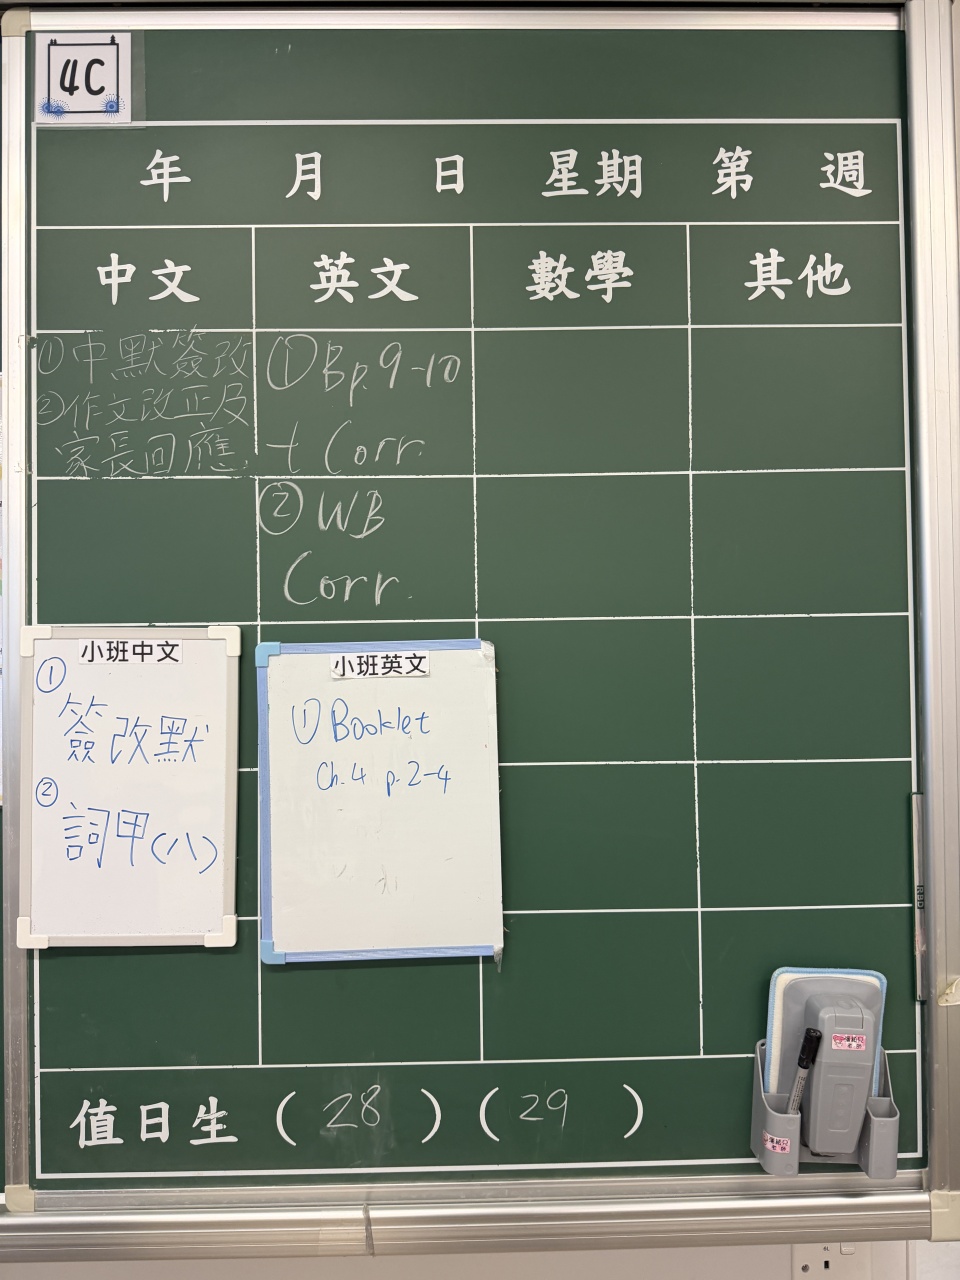 4C
年 月 日 星期 第 週
中文 英文 數學 其他
①中默簽改
②作文改正及
家長回應
①Bp.9-10
+ Corr.
② WB
Corr.
小班中文
①
簽改默
②
詞甲(八)
小班英文
① Booklet
Ch.4 p.2-4
值日生 ( 28 ) ( 29 )